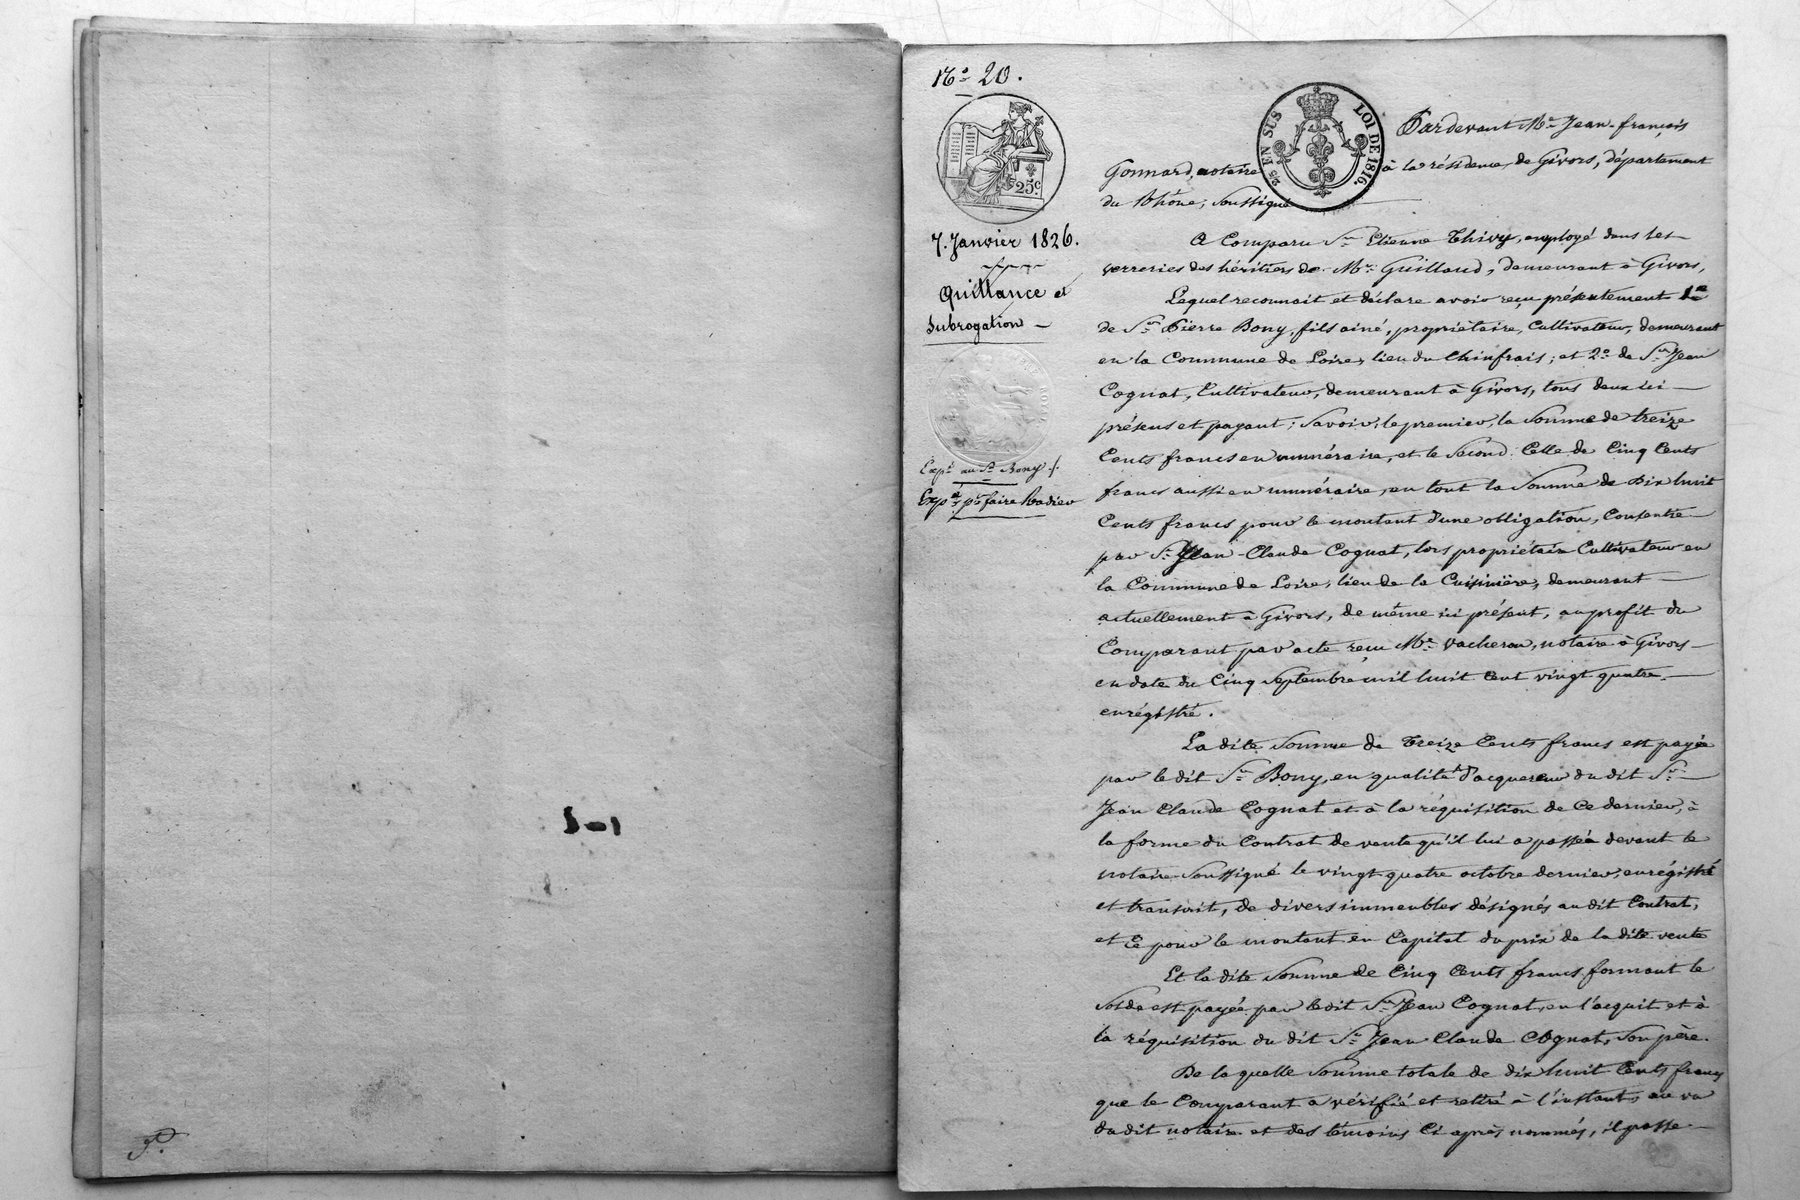 5-1
N.° 20.
25.c
7. Janvier 1826.
Quittance et
Subrogation —
Exp.on au S.r Bony
Exp.on p.r faire Radier
25 EN SUS
LOI DE 1816.
Pardevant M.e Jean-françois
Gonnard, notaire à la résidence de Givors, département
du Rhône, soussigné
A Comparu S.r Etienne Thivy, employé dans les
verreries des héritiers de M.r Guilloud, demeurant à Givors,
Lequel reconnait et déclare avoir reçu présentement 1.°
de S.r Pierre Bony, fils ainé, propriétaire, Cultivateur, demeurant
en la Commune de Loire, lieu du Chinfrais; et 2.° de S.r Jean
Cognat, Cultivateur, demeurant à Givors, tous deux ici
présens et payant; savoir, le premier, la Somme de treize
Cents francs en numéraire, et le second Celle de Cinq Cents
francs aussi en numéraire, en tout la Somme de Dix huit
Cents francs pour le montant d'une obligation, Consentie
par S.r Jean-Claude Cognat, lors propriétaire Cultivateur en
la Commune de Loire, lieu de la Cuisinière, demeurant
actuellement à Givors, de même ici présent, au profit du
Comparant par acte reçu M.e Vacheron, notaire à Givors
en date du Cinq Septembre mil huit Cent vingt quatre
enrégistré.
La dite Somme de Treize Cents francs est payée
par le dit S.r Bony, en qualité d'acquereur du dit S.r
Jean Claude Cognat et à la réquisition de Ce dernier, à
la forme du Contrat de vente qu'il lui a passée devant le
notaire Soussigné le vingt quatre octobre dernier, enrégistré
et transcrit, de divers immeubles désignés au dit Contrat,
et Ce pour le montant en Capital du prix de la dite vente
Et la dite Somme de Cinq Cents francs formant le
Solde est payée par le dit S.r Jean Cognat, en l'acquit et à
la réquisition du dit S.r Jean Claude Cognat, Son père.
De la quelle Somme totale de dix huit Cents francs
que le Comparant a vérifié et retiré à l'instant, au vu
du dit notaire et des témoins Ci après nommés, il passe